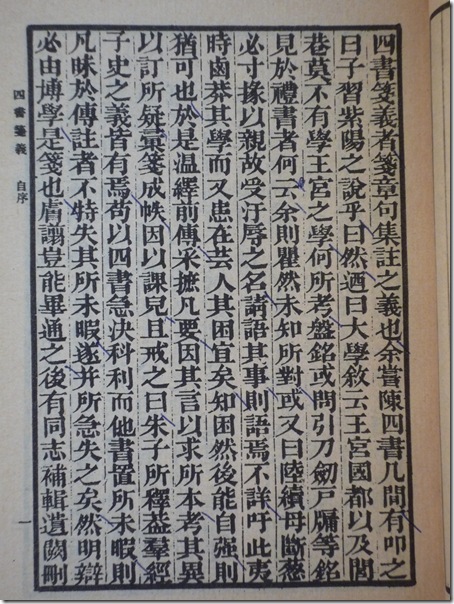 四書箋義者箋章句集註之義也余嘗陳四書几間有叩之
曰子習紫陽之說乎曰然迺曰大學敘云王宮國都以及閭
巷莫不有學王宮之學何所考盤銘或問引刀劒戶牖等銘
見於禮書者何云余則瞿然未知所對或又曰陸續母斷葱
必寸掾以親故受汙辱之名請語其事則語焉不詳吁此夷
時鹵莽其學而又患在芸人其困宜矣知困然後能自强則
猶可也於是温繹前傳采摭凡要因其言以求所本考其異
以訂所疑彙箋成帙因以課兒且戒之曰朱子所釋葢羣經
子史之義皆有焉苟以四書急決科利而他書置所未暇則
凡昧於傳註者不特失其所未暇遂并所急失之矣然明辯
必由博學是箋也膚讓豈能畢通之後有同志補輯遺闕刪
四書箋義 自序
一